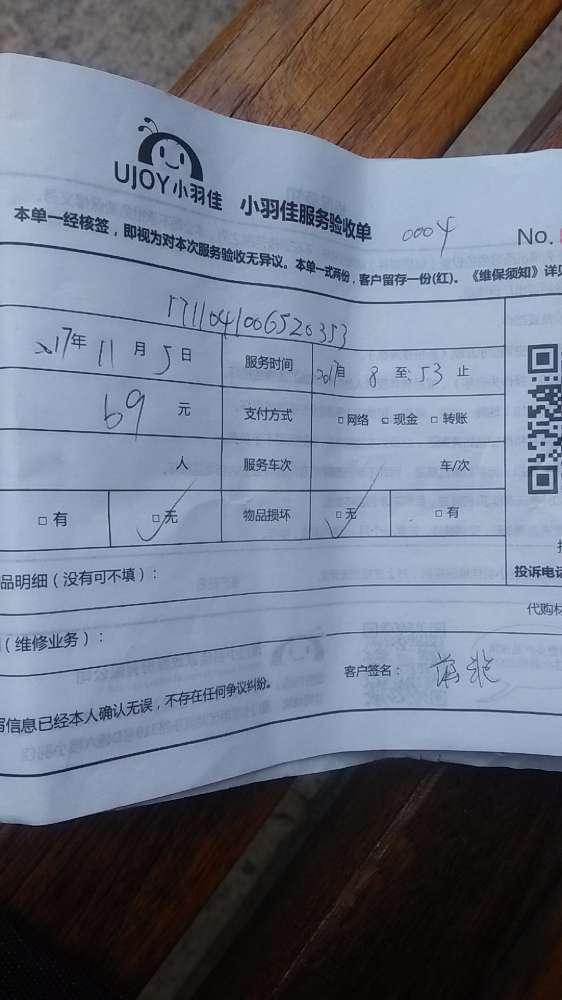 UJOY小羽佳 小羽佳服务验收单 0004 No.
本单一经核签，即视为对本次服务验收无异议。本单一式两份，客户留存一份(红)。《维保须知》详见
1711041006520353
2017年 11 月 5 日 服务时间 8 至: 53 止
69 元 支付方式 □网络 □现金 □转账
人 服务车次 车/次
□有 □无 物品损坏 □无 □有
品明细（没有可不填）：
投诉电话
代购材
（维修业务）：
客户签名：
信息已经本人确认无误，不存在任何争议纠纷。